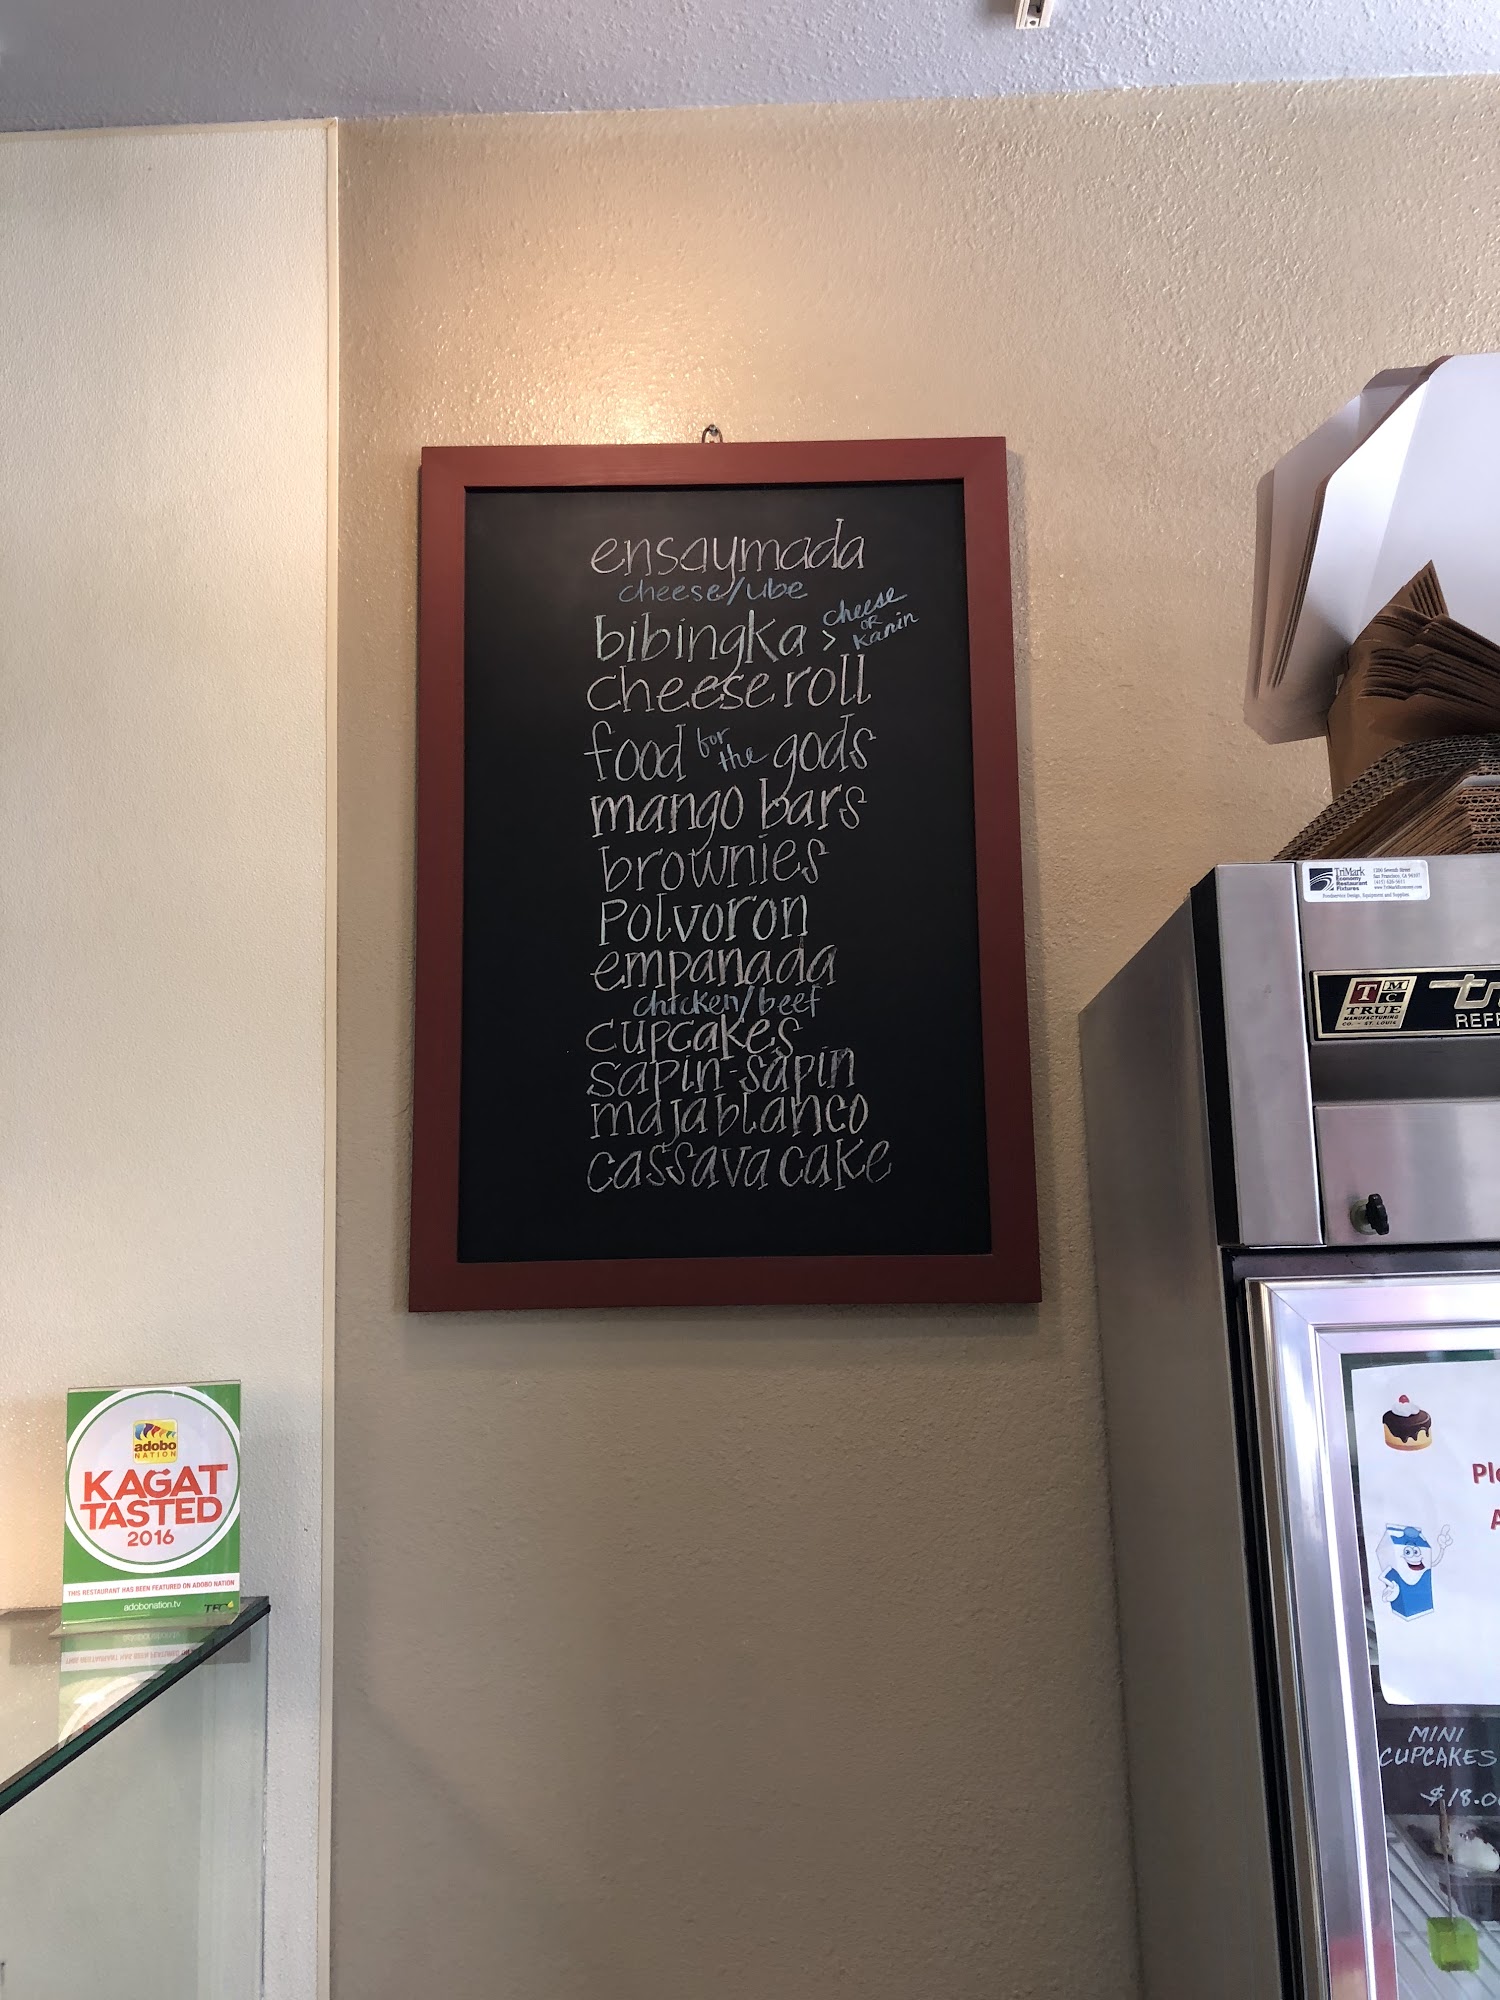 ensaymada
cheese/ube
bibingka > cheese
OR
kanin
cheese roll
food for the gods
mango bars
brownies
polvoron
empanada
chicken/beef
cupcakes
sapin-sapin
maja blanco
cassava cake
adobo
NATION
KAGAT
TASTED
2016
THIS RESTAURANT HAS BEEN FEATURED ON ADOBO NATION
adobonation.tv
TFC
TriMark
Economy
Restaurant
Fixtures
1200 Seventh Street
San Francisco, CA 94107
(415) 626-5611
www.TriMarkEconomy.com
Foodservice Design, Equipment and Supplies
T M C
TRUE
MANUFACTURING
CO. - ST. LOUIS
MINI
CUPCAKES
$18.0